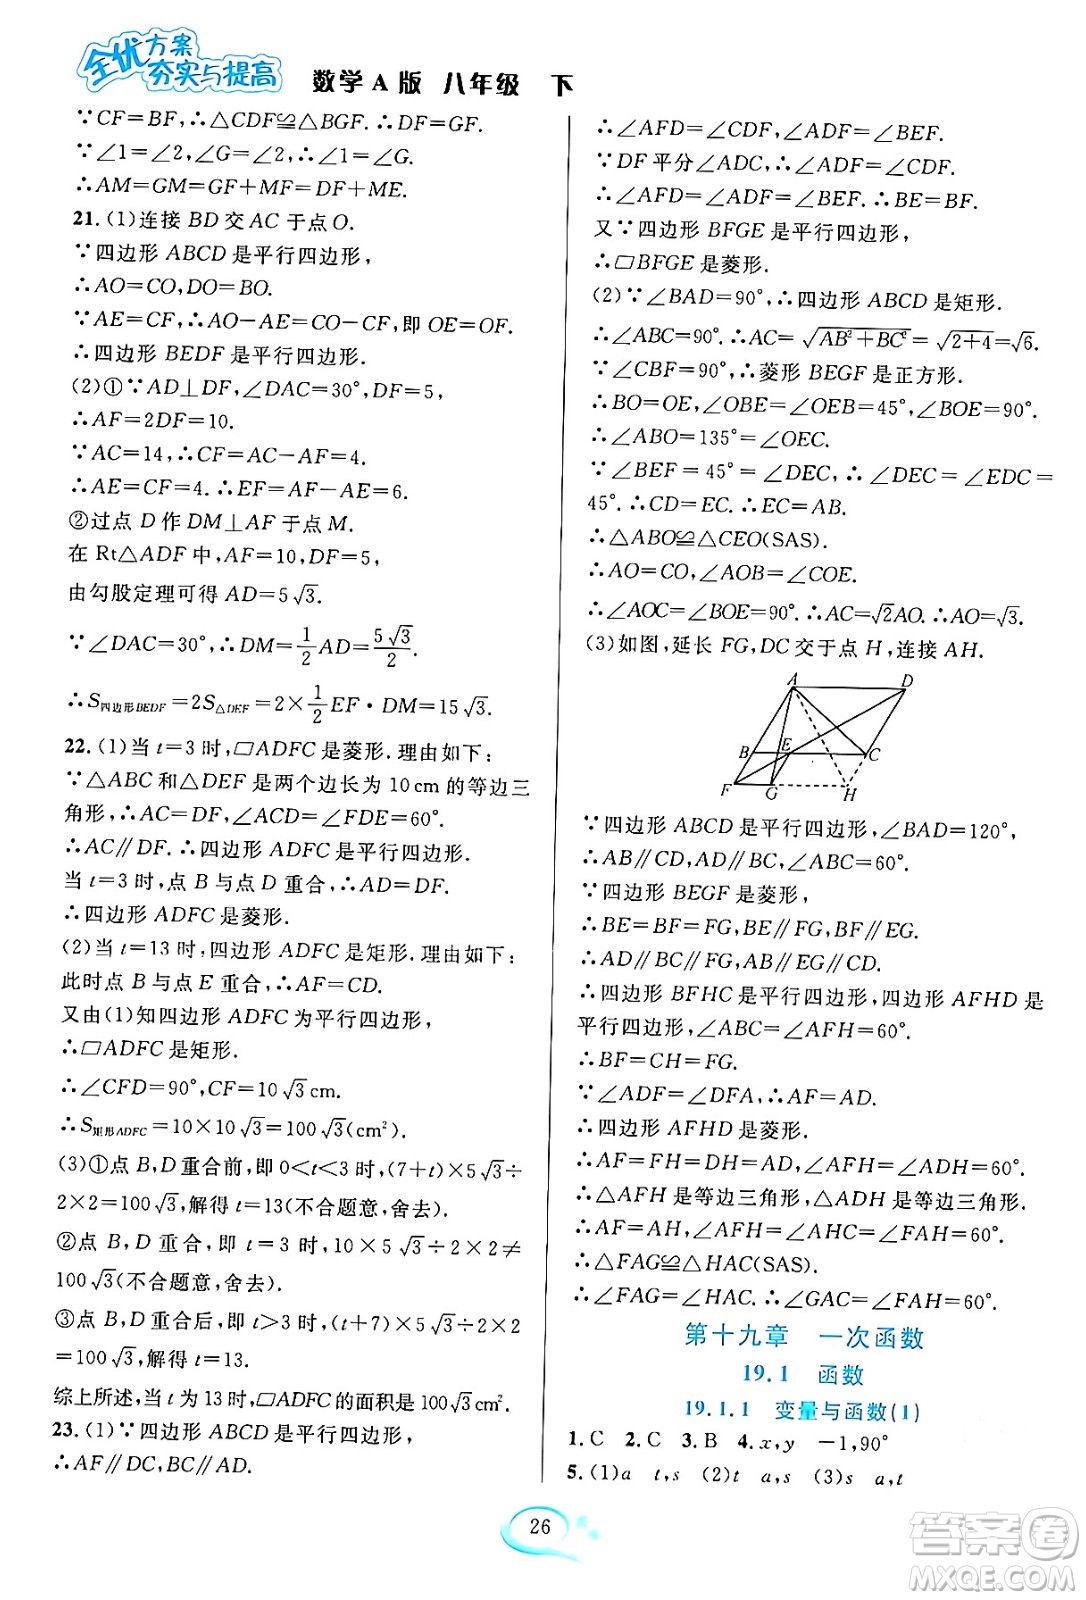 全优方案
夯实与提高
数学A版 八年级 下
∵CF=BF,∴△CDF≌△BGF.∴DF=GF.
∵∠1=∠2,∠G=∠2,∴∠1=∠G.
∴AM=GM=GF+MF=DF+ME.
21.(1)连接BD交AC于点O.
∵四边形ABCD是平行四边形,
∴AO=CO,DO=BO.
∵AE=CF,∴AO−AE=CO−CF,即OE=OF.
∴四边形BEDF是平行四边形.
(2)①∵AD⊥DF,∠DAC=30°,DF=5,
∴AF=2DF=10.
∵AC=14,∴CF=AC−AF=4.
∴AE=CF=4.∴EF=AF−AE=6.
②过点D作DM⊥AF于点M.
在Rt△ADF中,AF=10,DF=5,
由勾股定理可得AD=5√3.
∵∠DAC=30°,∴DM=1/2AD=5√3/2.
∴S四边形BEDF=2S△DEF=2×1/2EF·DM=15√3.
22.(1)当t=3时,▱ADFC是菱形.理由如下:
∵△ABC和△DEF是两个边长为10cm的等边三
角形,∴AC=DF,∠ACD=∠FDE=60°.
∴AC∥DF.∴四边形ADFC是平行四边形.
当t=3时,点B与点D重合,∴AD=DF.
∴四边形ADFC是菱形.
(2)当t=13时,四边形ADFC是矩形.理由如下:
此时点B与点E重合,∴AF=CD.
又由(1)知四边形ADFC为平行四边形,
∴▱ADFC是矩形.
∴∠CFD=90°,CF=10√3cm.
∴S矩形ADFC=10×10√3=100√3(cm²).
(3)①点B,D重合前,即0<t<3时,(7+t)×5√3÷
2×2=100√3,解得t=13(不合题意,舍去).
②点B,D重合,即t=3时,10×5√3÷2×2≠
100√3(不合题意,舍去).
③点B,D重合后,即t>3时,(t+7)×5√3÷2×2
=100√3,解得t=13.
综上所述,当t为13时,▱ADFC的面积是100√3cm².
23.(1)∵四边形ABCD是平行四边形,
∴AF∥DC,BC∥AD.
∴∠AFD=∠CDF,∠ADF=∠BEF.
∵DF平分∠ADC,∴∠ADF=∠CDF.
∴∠AFD=∠ADF=∠BEF.∴BE=BF.
又∵四边形BFGE是平行四边形,
∴▱BFGE是菱形.
(2)∵∠BAD=90°,∴四边形ABCD是矩形.
∴∠ABC=90°.∴AC=√AB²+BC²=√2+4=√6.
∵∠CBF=90°,∴菱形BEGF是正方形.
∴BO=OE,∠OBE=∠OEB=45°,∠BOE=90°.
∴∠ABO=135°=∠OEC.
∵∠BEF=45°=∠DEC,∴∠DEC=∠EDC=
45°.∴CD=EC.∴EC=AB.
∴△ABO≌△CEO(SAS).
∴AO=CO,∠AOB=∠COE.
∴∠AOC=∠BOE=90°.∴AC=√2AO.∴AO=√3.
(3)如图,延长FG,DC交于点H,连接AH.
A D
B E C
F G H
∵四边形ABCD是平行四边形,∠BAD=120°,
∴AB∥CD,AD∥BC,∠ABC=60°.
∵四边形BEGF是菱形,
∴BE=BF=FG,BE∥FG,BF∥EG.
∴AD∥BC∥FG,AB∥EG∥CD.
∴四边形BFHC是平行四边形,四边形AFHD是
平行四边形,∠ABC=∠AFH=60°.
∴BF=CH=FG.
∵∠ADF=∠DFA,∴AF=AD.
∴四边形AFHD是菱形.
∴AF=FH=DH=AD,∠AFH=∠ADH=60°.
∴△AFH是等边三角形,△ADH是等边三角形.
∴AF=AH,∠AFH=∠AHC=∠FAH=60°.
∴△FAG≌△HAC(SAS).
∴∠FAG=∠HAC.∴∠GAC=∠FAH=60°.
第十九章 一次函数
19.1 函数
19.1.1 变量与函数(1)
1.C 2.C 3.B 4.x,y −1,90°
5.(1)a t,s (2)t a,s (3)s a,t
26
答案卷
MXQE.COM